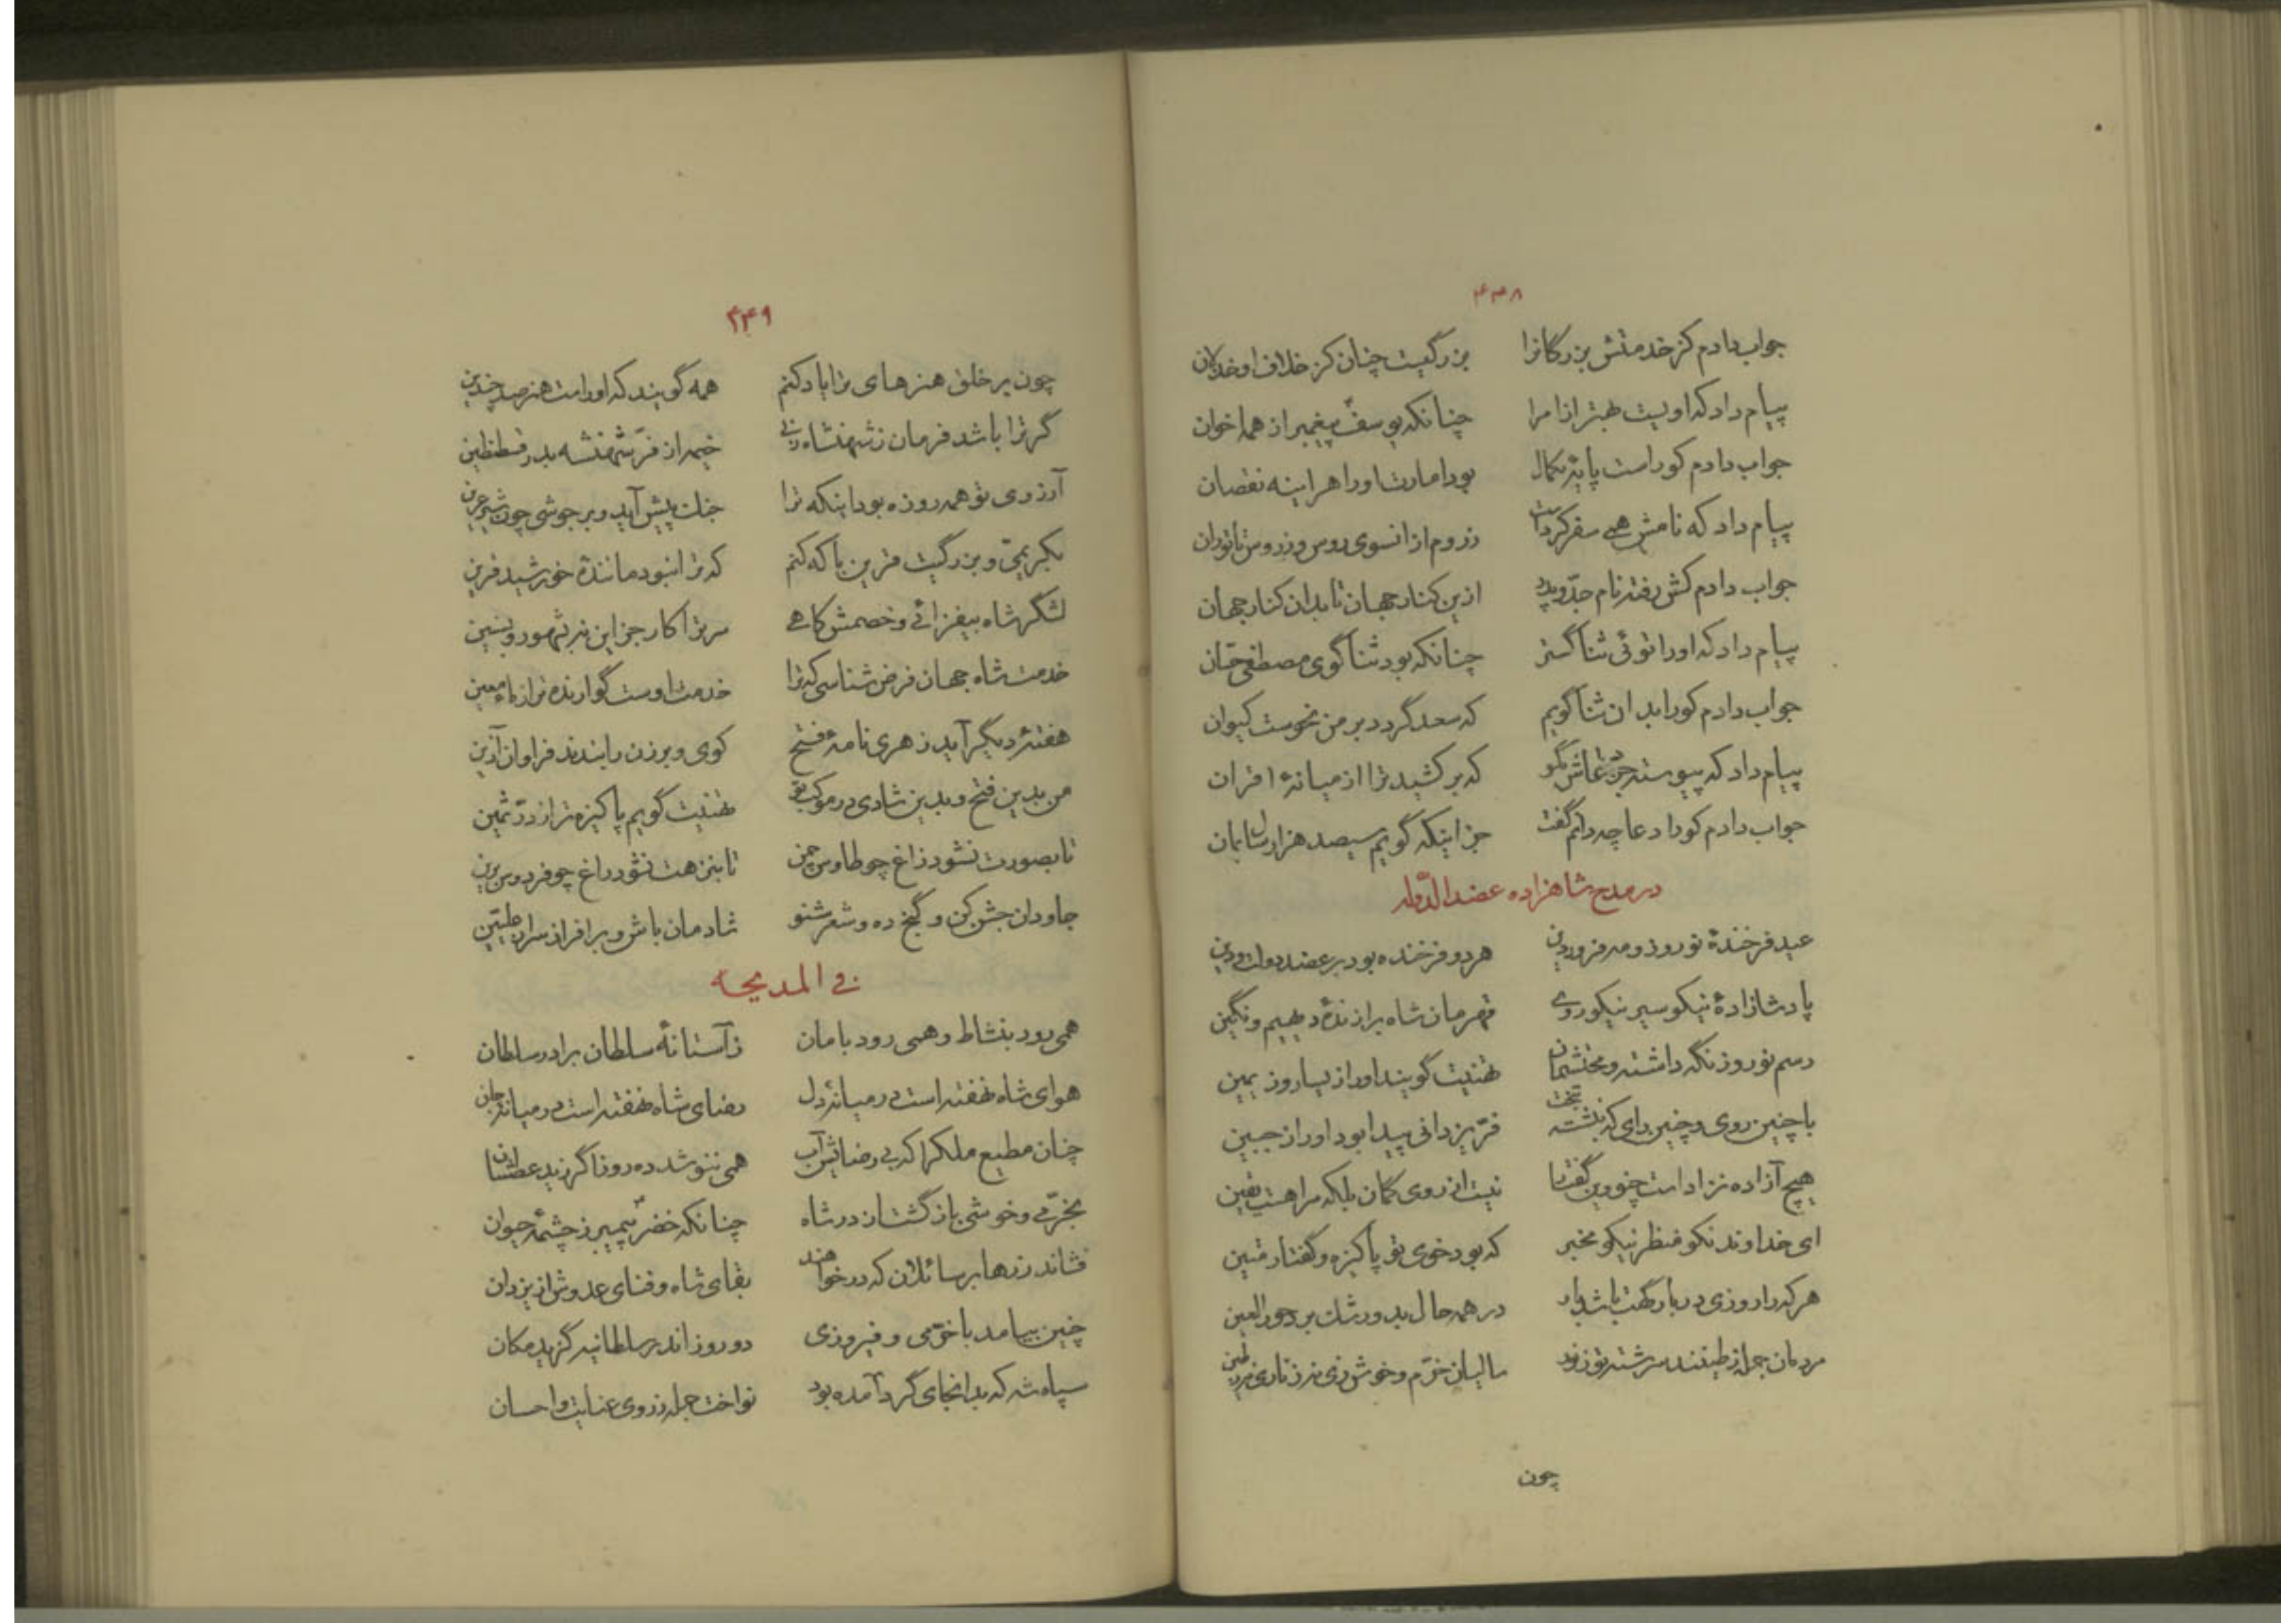 ۴۴۸
جواب دادم کز خدمتش بزرگانرا بزرگیست چنان کز خلاف او خذلان
پیام داد که او نیست بهتر از امرا چنانکه یوسف پیغمبر از همه اخوان
جواب دادم کوراست پایهٔ بکمال بود امارت او را هراینه نقصان
پیام داد که نامش همی سفر کردست ز روم از انسوی روس و ز روس تا توران
جواب دادم کش رفته نام جد و پدر ازین کنار جهان تا بدان کنار جهان
پیام داد که او را توئی ثنا گستر چنانکه بود ثنا گوی مصطفی حسان
جواب دادم کورا بدان ثنا گویم که سعد گردد بر من نحوست کیوان
پیام داد که پیوسته جز دعاش مگو که برکشید ترا از میانهٔ اقران
جواب دادم کورا دعا چه دانم گفت جز اینکه گویم سیصد هزار سال بمان
در مدح شاهزاده عضد الدوله
عید فرخندهٔ نوروز و مه فروردین هر دو فرخنده بود بر عضد دولت و دین
پادشازادهٔ نیکو سیر نیکو روی قهرمان شاه برازندهٔ دیهیم و نگین
رسم نوروز نگه داشته و محتشمان تهنیت گویند او را ز یسار و ز یمین
با چنین روی و چنین رای که بنشسته بتخت فر یزدانی پیدا بود او را ز جبین
هیچ آزاده نزاد است چنو وین گفتا نیست از روی گمان بلکه مرا هست یقین
ای خداوند نکو منظر نیکو مخبر که بود خوی تو پاکیزه و گفتار متین
هر که را روزی در بارگهت باشد بار در همه حال بدو رشک برد حور العین
مردمان جمله ز طینند سرشته تو ز نور سالیان خرم و خوش زی نه ز ناری نه ز طین
چون
۴۴۹
چون بر خلق هنرهای ترا یاد کنم همه گویند که اوراست هنر صد چندین
گر ترا باشد فرمان ز شهنشاه زنی خیمه از فر شهنشه بدر قسطنطین
آرزوی تو همه روزه بود اینکه ترا جنگ پیش آید و بر جوشی چون شیر عرین
بکریمی و بزرگیت قرین با که کنم که ترا نبود مانندهٔ خورشید قرین
لشگر شاه بیفزائی و خصمش کاهی مر ترا کار جز این نبد شهور و سنین
خدمت شاه جهان فرض شناسی که ترا خدمت اوست گوارنده تر از ماء معین
هفتهٔ دیگر آید ز هری نامهٔ فتح کوی و برزن را بندند فراوان آذین
من بدین فتح و بدین شادی در موکب تو تهنیت گویم پاکیزه تر از در ثمین
تا بصورت نشود زاغ چو طاوس چمن تا بنزهت نشود راغ چو فردوس برین
جاودان جشن کن و گنج ده و شعر شنو شادمان باش و برافراز سر از علیین
فی المدیحه
همی رود بنشاط و همی رود بامان ز آستانهٔ سلطان برادر سلطان
هوای شاه نهفته است در میانهٔ دل رضای شاه نهفته است در میانهٔ جان
چنان مطیع ملک را که بی رضاش آب همی ننوشد ده روز اگر زید عطشان
بخرمی و خوشی باز گشت از در شاه چنانکه خضر پیمبر ز چشمهٔ حیوان
فشاند زرها بر سائلان که در خواهند بقای شاه و فنای عدوش از یزدان
چنین بیامد با خرمی و فیروزی دو روز اندر سلطانیه گزید مکان
سپاه شه که بدانجای گرد آمده بود نواخت جمله ز روی عنایت و احسان